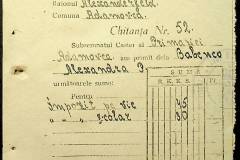 Raionul Alexanderfeld.
Comuna Adamovca.
Chitanța Nr. 52.
Subsemnatul Casier al Primăriei
Adamovca am primit dela Babenco
Alexandra 3.
următoarele sume:
SUMA
Pentru
Impozit pe vie 45
" " școlar 80